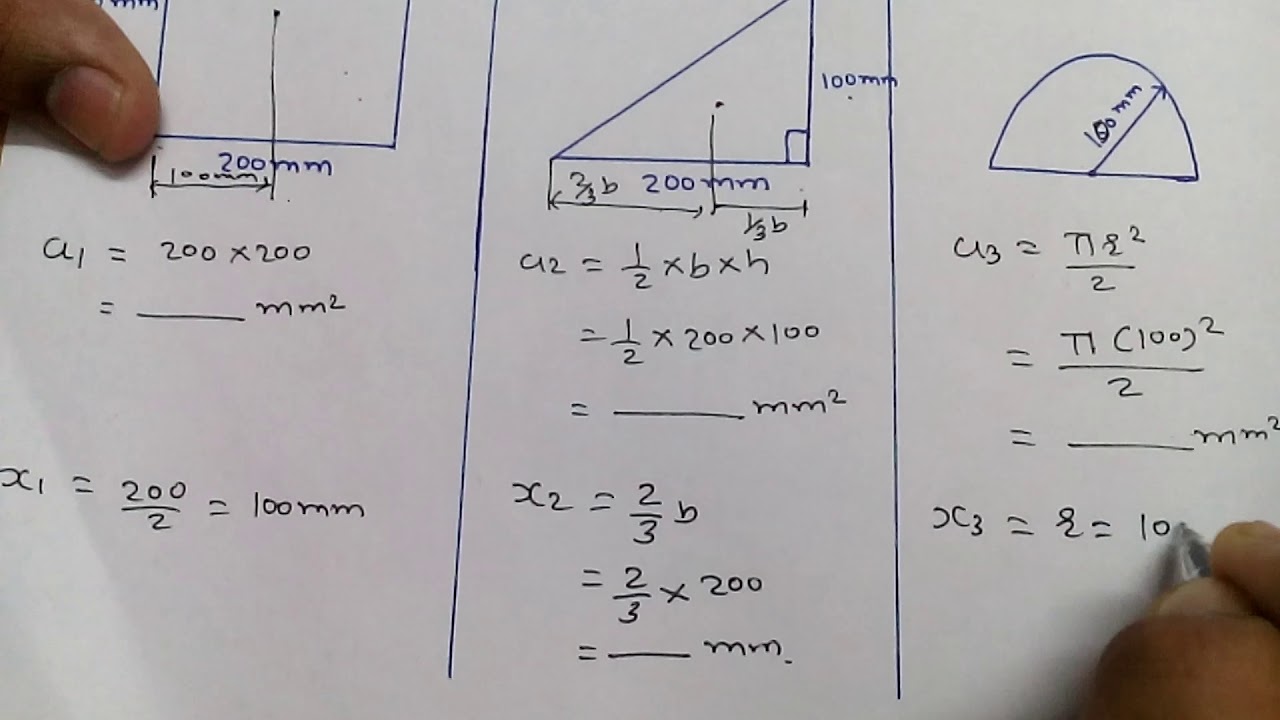 mm
200 mm
100mm
a1 = 200 × 200
= ____ mm²
x1 = 200/2 = 100mm
100mm
2/3 b 200 mm
1/3 b
a2 = 1/2 × b × h
= 1/2 × 200 × 100
= ____ mm²
x2 = 2/3 b
= 2/3 × 200
= ____ mm.
100 mm
a3 = πr²/2
= π(100)²/2
= ____ mm²
x3 = r = 10